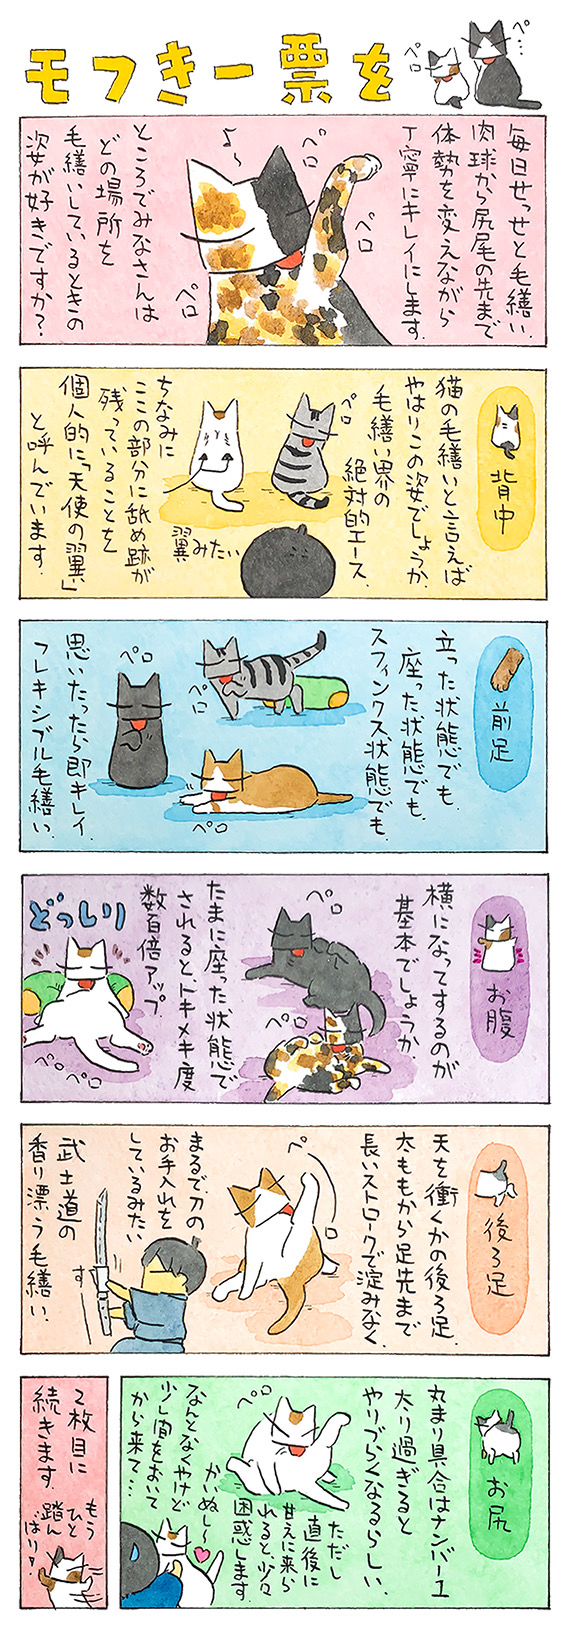 モフきー票を
ペ…
ペロ
毎日せっせと毛繕い。
肉球から尻尾の先まで
体勢を変えながら
丁寧にキレイにします。
ペロ
ペロ
♪〜
ペロ
ところでみなさんは
どの場所を
毛繕いしているときの
姿が好きですか?
背中
猫の毛繕いと言えば
やはりこの姿でしょうか。
毛繕い界の
絶対的エース。
ペロ
翼みたい
ちなみに
ここの部分に舐め跡が
残っていることを
個人的に「天使の翼」
と呼んでいます。
前足
立った状態でも。
座った状態でも。
スフィンクス状態でも。
ペロ
ペロ
ペロ
思いたったら即キレイ。
フレキシブル毛繕い。
お腹
横になってするのが
基本でしょうか。
ペロ
ペロ
たまに座った状態で
されるとトキメキ度
数百倍アップ
どっしり
ペロペロ
後ろ足
天を衝くかの後ろ足。
太ももから足先まで
長いストロークで淀みなく。
ペ
ロ
まるで刀の
お手入れを
しているみたい
す
武士道の
香り漂う毛繕い。
お尻
丸まり具合はナンバー1
太り過ぎると
やりづらくなるらしい。
ペロ
ただし
直後に
甘えに来ら
れると、少々
困惑します。
かいぬし〜
なんとなくやけど
少し間をおいて
から来て…
2枚目に
続きます。
もう
ひと
踏ん
ばり!